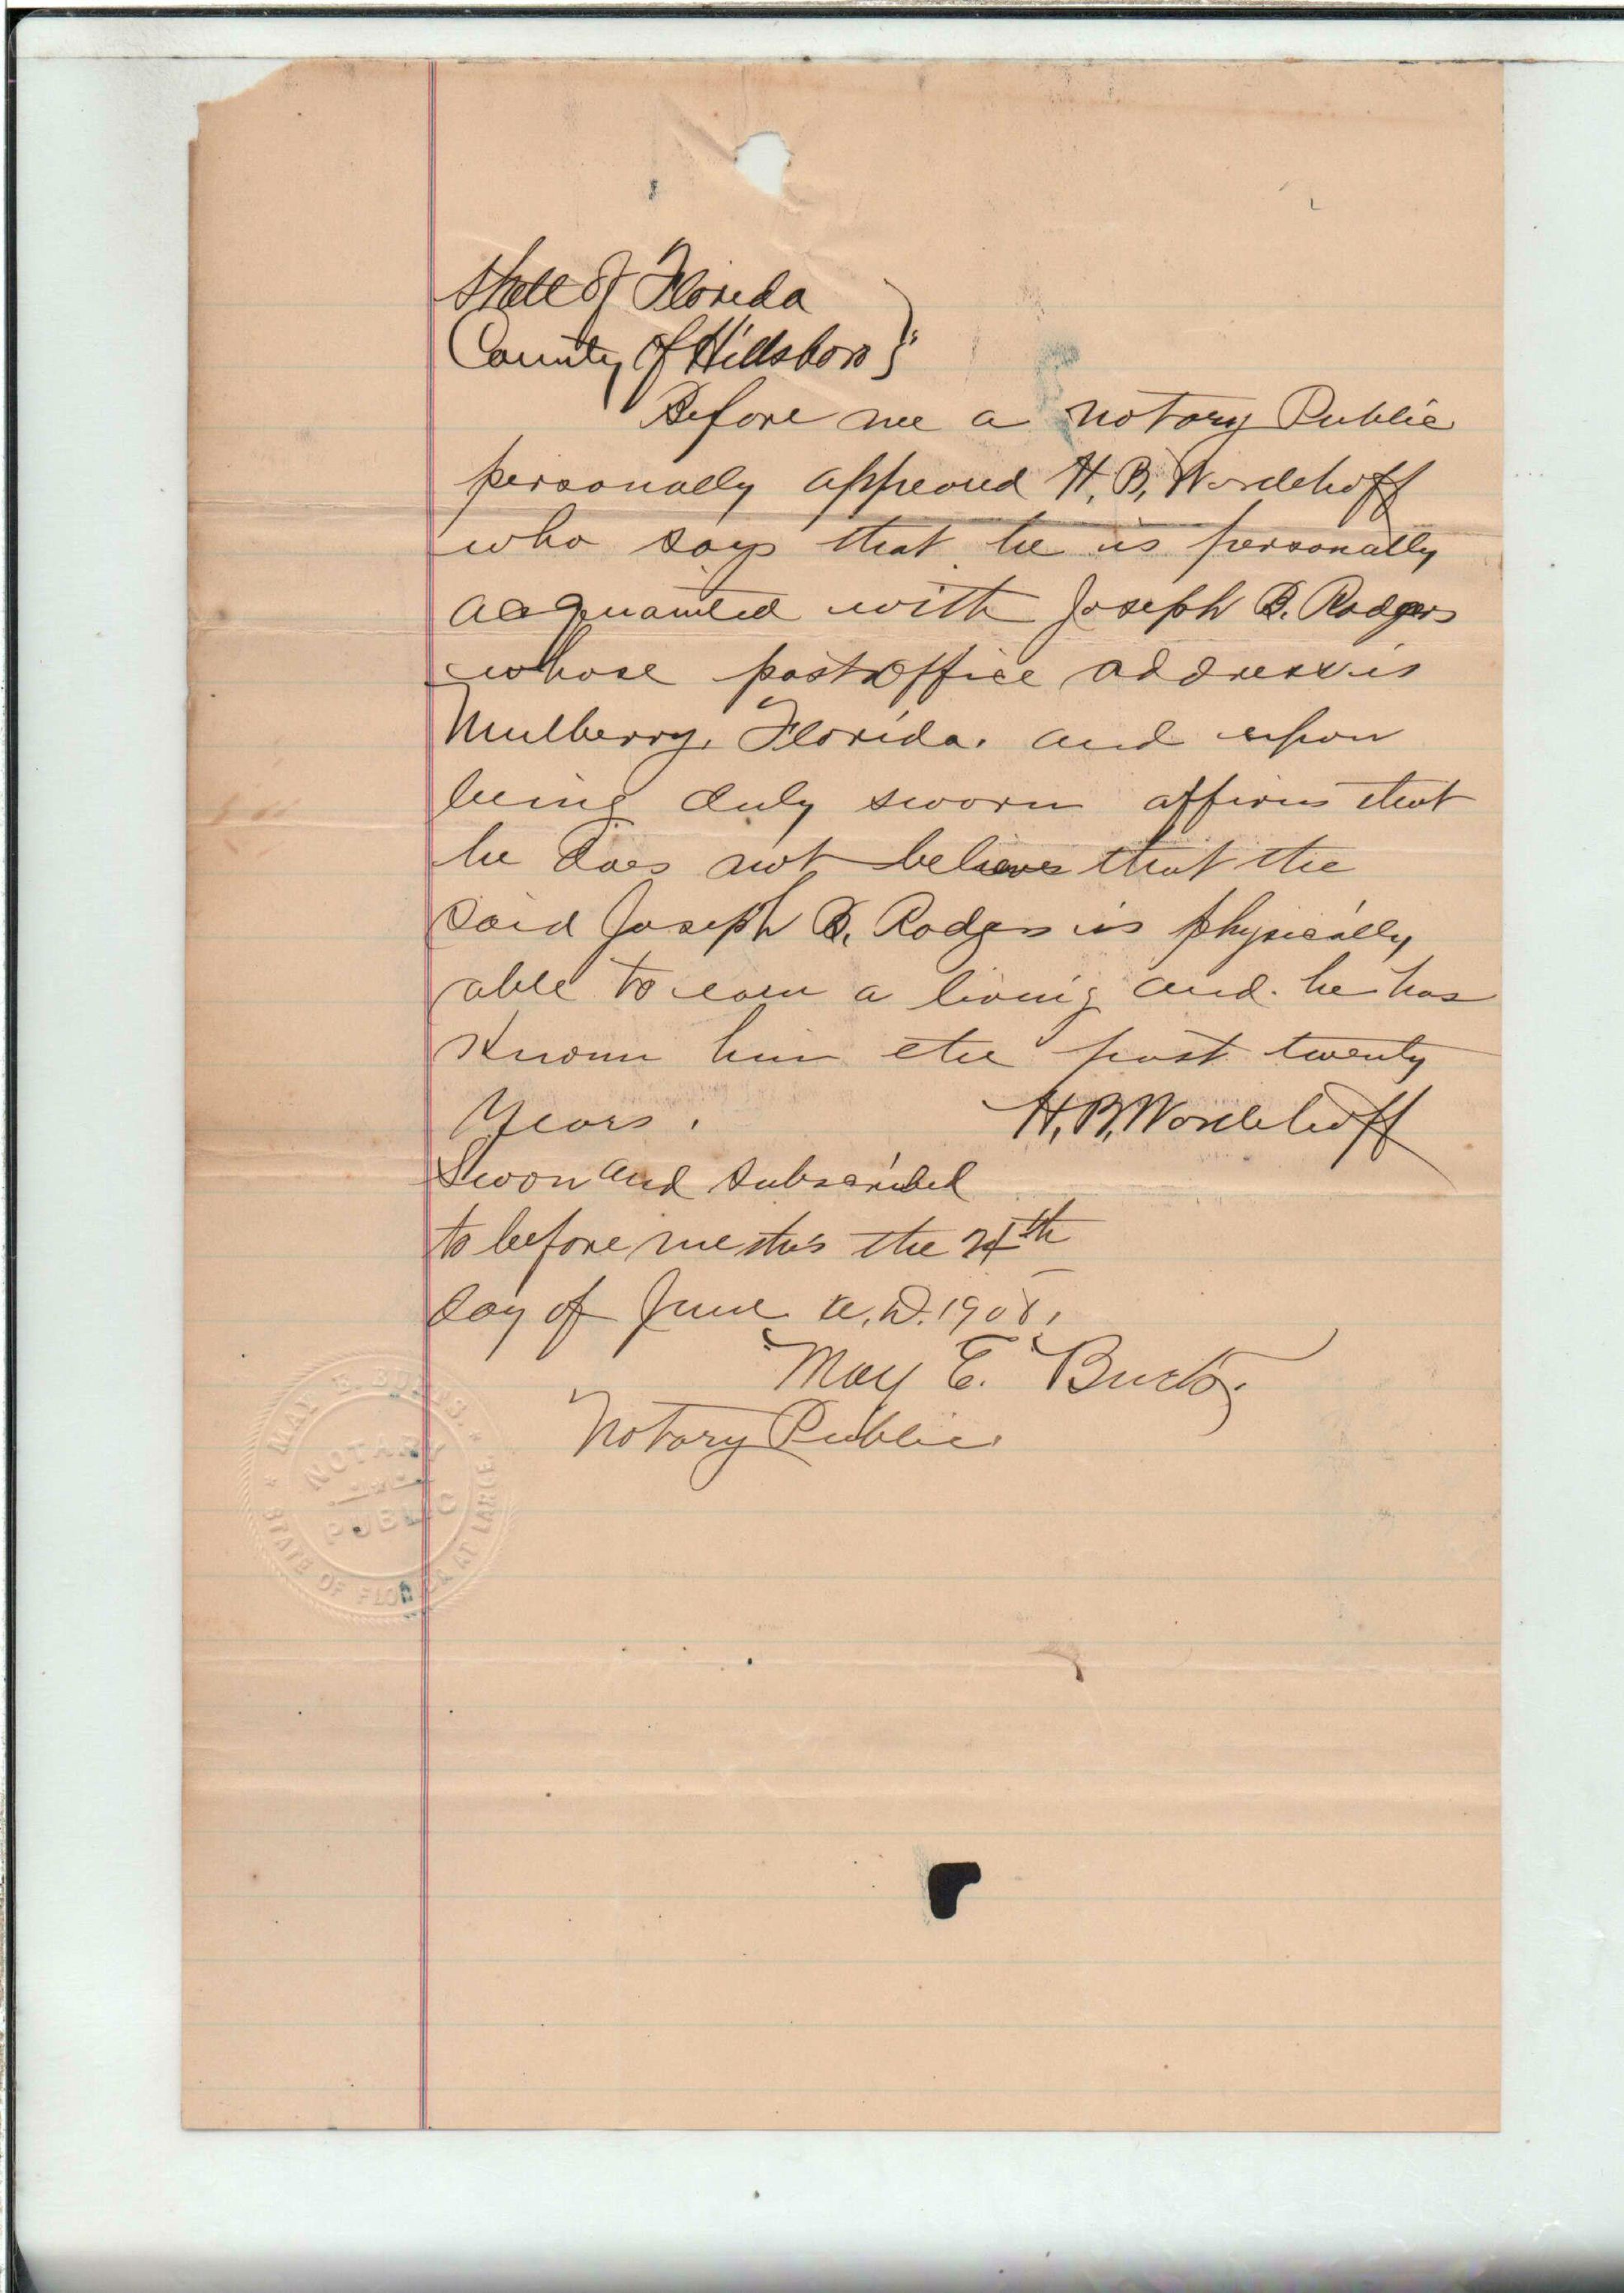 State of Florida
County of Hillsboro
Before me a notary Public
personally appeared H. B. Wordehoff
who says that he is personally
acquainted with Joseph B. Rodgers
whose postoffice address is
Mulberry, Florida. and upon
being duly sworn affirms that
he does not believes that the
said Joseph B. Rodgers is physically
able to earn a living and he has
known him the past twenty
years.
H. B. Wordehoff
Sworn and subscribed
to before me this the
day of June A.D. 1908.
May E.
Notary Public
MAY E.
NOTARY
PUBLIC
STATE OF FLORIDA AT LARGE